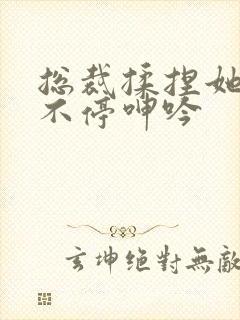 总裁揉捏她
不停呻吟
玄坤绝對無敵